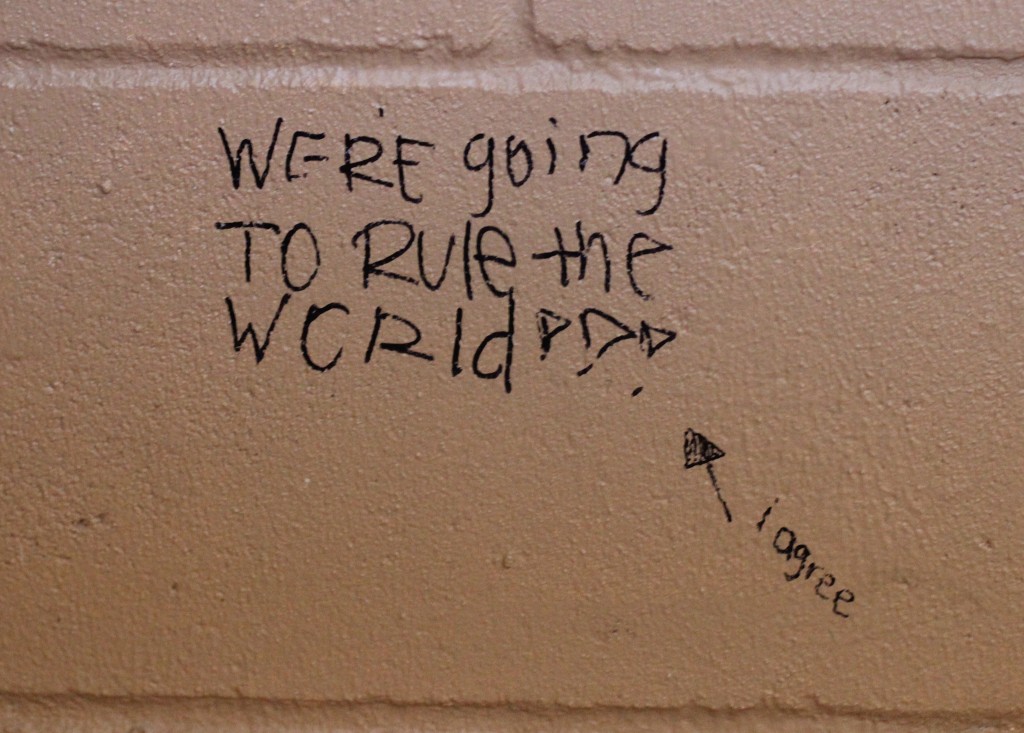 WE'RE going
TO RULE the
WORLD!!!
i agree